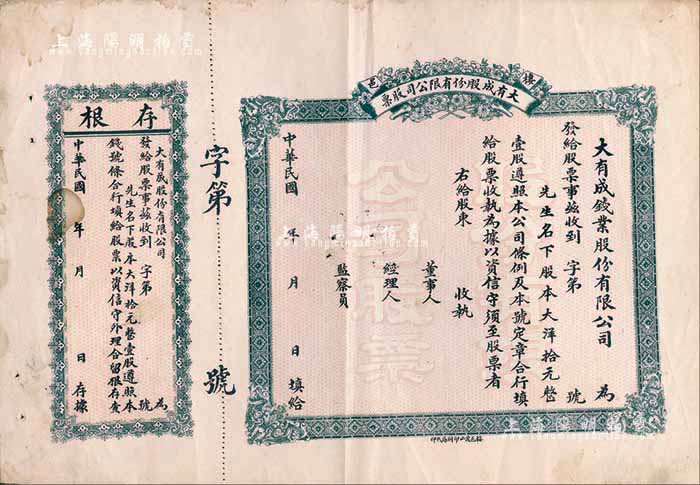 大有成股份有限公司股票
大有成錢業股份有限公司 為
發給股票事茲收到 字第 號
先生名下股本大洋拾元整
壹股遵照本公司條例及本號定章合行填
給股票收執為據以資信守須至股票者
右給股東 收執
董事人
經理人
監察員
中華民國 年 月 日填給
公司股票
字第 號
存根
大有成股份有限公司 為
發給股票事茲收到 字第 號
先生名下股本大洋拾元整壹股遵照本
錢號條合行填給股票以資信守外理合留根存查
中華民國 年 月 日存據
上海陽明拍賣
www.yangmingauction.com
上海陽明拍賣